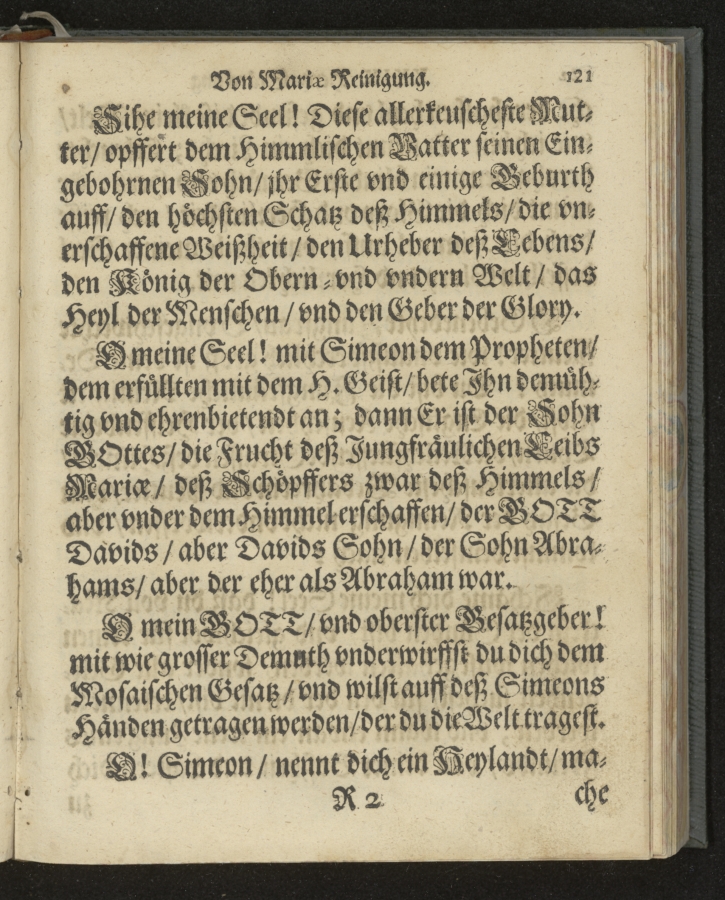 Von Mariæ Reinigung. 121
Sihe meine Seel! Diese allerkeuscheste Mut-
ter/ opffert dem Himmlischen Vatter seinen Ein-
gebohrnen Sohn/ jhr Erste vnd einige Geburth
auff/ den höchsten Schatz deß Himmels/ die vn-
erschaffene Weißheit/ den Urheber deß Lebens/
den König der Obern- vnd vndern Welt/ das
Heyl der Menschen/ vnd den Geber der Glory.
O meine Seel! mit Simeon dem Propheten/
dem erfüllten mit dem H. Geist/ bete Jhn demüh-
tig vnd ehrenbietendt an; dann Er ist der Sohn
GOttes/ die Frucht deß Jungfräulichen Leibs
Mariæ/ deß Schöpffers zwar deß Himmels/
aber vnder dem Himmel erschaffen/ der GOTT
Davids/ aber Davids Sohn/ der Sohn Abra-
hams/ aber der eher als Abraham war.
O mein GOTT/ vnd oberster Gesatzgeber!
mit wie grosser Demuth vnderwirffst du dich dem
Mosaischen Gesatz/ vnd wilst auff deß Simeons
Händen getragen werden/ der du die Welt tragest.
O! Simeon/ nennt dich ein Heylandt/ ma-
R 2 che